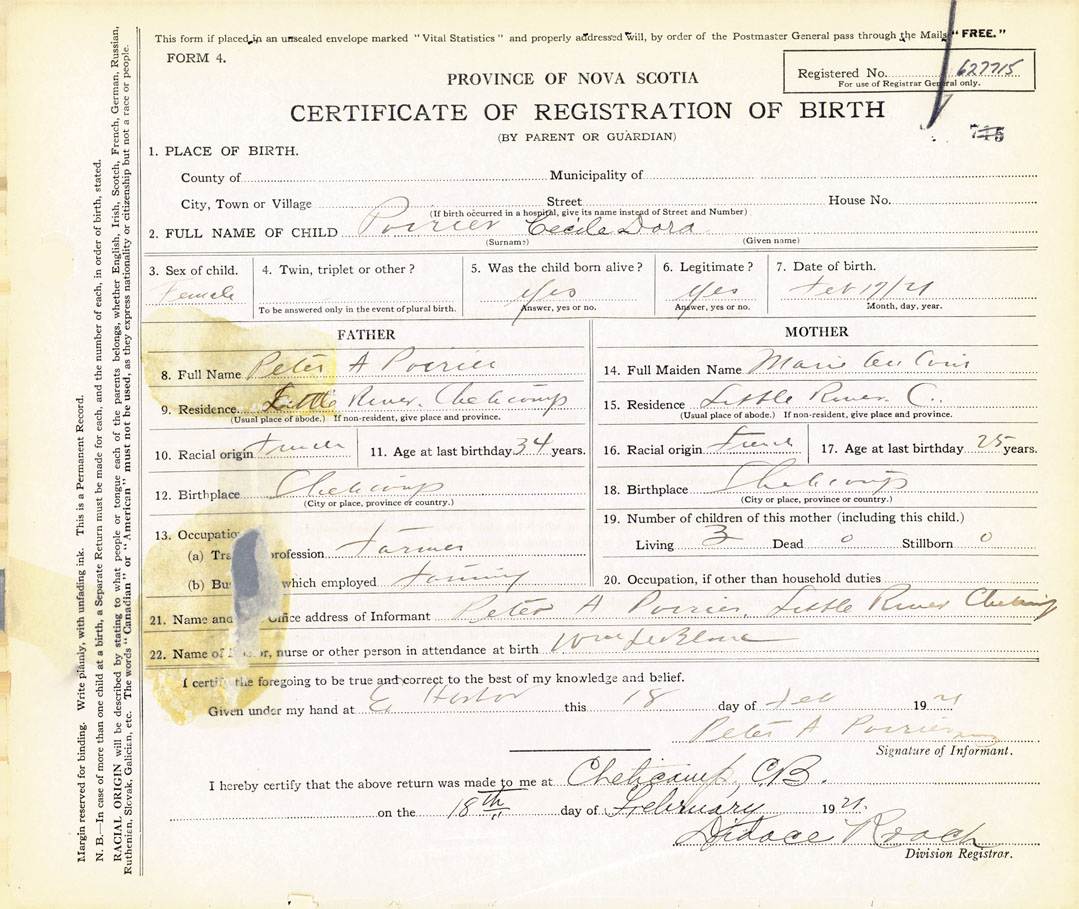 This form if placed in an unsealed envelope marked "Vital Statistics" and properly addressed will, by order of the Postmaster General pass through the Mails "FREE."
FORM 4.
Registered No. 627715
For use of Registrar General only.
PROVINCE OF NOVA SCOTIA
CERTIFICATE OF REGISTRATION OF BIRTH
(BY PARENT OR GUARDIAN)
1. PLACE OF BIRTH.
County of Municipality of
City, Town or Village Street House No.
(If birth occurred in a hospital, give its name instead of Street and Number)
2. FULL NAME OF CHILD Poirier Cecile Dora
(Surname) (Given name)
3. Sex of child. 4. Twin, triplet or other? 5. Was the child born alive? 6. Legitimate? 7. Date of birth.
Female Yes Yes Feb 17/21
To be answered only in the event of plural birth. Answer, yes or no. Answer, yes or no. Month, day, year.
FATHER
8. Full Name Peter A Poirier
9. Residence Little River. Cheticamp
(Usual place of abode.) If non-resident, give place and province.
10. Racial origin French 11. Age at last birthday 34 years.
12. Birthplace Cheticamp
(City or place, province or country.)
13. Occupation
(a) profession Farmer
(b) which employed Farming
MOTHER
14. Full Maiden Name Marie
15. Residence Little River. C..
(Usual place of abode.) If non-resident, give place and province.
16. Racial origin French 17. Age at last birthday 25 years.
18. Birthplace Cheticamp
(City or place, province or country.)
19. Number of children of this mother (including this child.)
Living 3 Dead 0 Stillborn 0
20. Occupation, if other than household duties
21. Name and Office address of Informant Peter A Poirier, Little River Cheticamp
22. Name of nurse or other person in attendance at birth Wm LeBlanc
I certify the foregoing to be true and correct to the best of my knowledge and belief.
Given under my hand at E Harbor this 18 day of Feb 1921
Peter A Poirier
Signature of Informant.
I hereby certify that the above return was made to me at Cheticamp, C.B.
on the 18th day of February 1921.
Didace Roach
Division Registrar.
Margin reserved for binding. Write plainly, with unfading ink. This is a Permanent Record.
N. B.—In case of more than one child at a birth, a Separate Return must be made for each, and the number of each, in order of birth, stated.
RACIAL ORIGIN will be described by stating to what people or tongue each of the parents belongs, whether English, Irish, Scotch, French, German, Russian,
Ruthenian, Slovak, Galician, etc. The words "Canadian" or "American" must not be used, as they express nationality or citizenship but not a race or people.